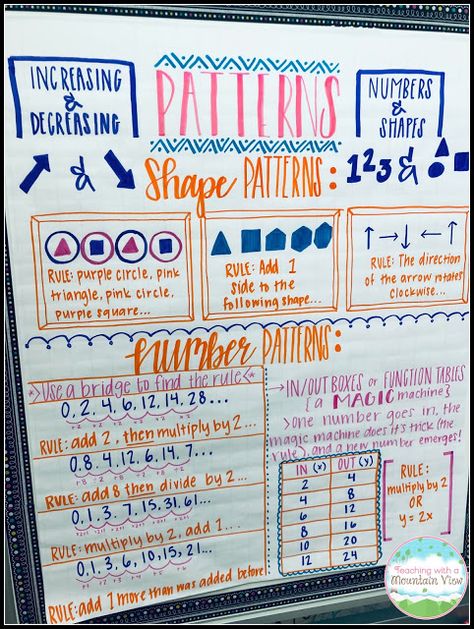 INCREASING
&
DECREASING
PATTERNS
NUMBERS
&
SHAPES
&
Shape PATTERNS:
123 &
RULE: purple circle, pink
triangle, pink circle,
purple square...
RULE: Add 1
side to the
following shape...
RULE: The direction
of the arrow rotates
clockwise...
number PATTERNS:
*>Use a bridge to find the rule<*
0, 2, 4, 6, 12, 14, 28...
RULE: add 2, then multiply by 2...
0.8.4.12.6.14.7...
RULE: add 8 then divide by 2...
0,1,3.7,15,31,61...
RULE: multiply by 2, add 1...
0,1,3,6,10,15,21...
RULE: add 1 more than was added before
→IN/OUT BOXES or FUNCTION TABLES
{a MAGIC machine}
>one number goes in, the
magic machine does it's trick (the
rule), and a new number emerges!
IN (x) OUT (y)
2 4
4 8
6 12
8 16
10 20
12 24
RULE:
multiply by 2
OR
y = 2x
Teaching with a
Mountain View